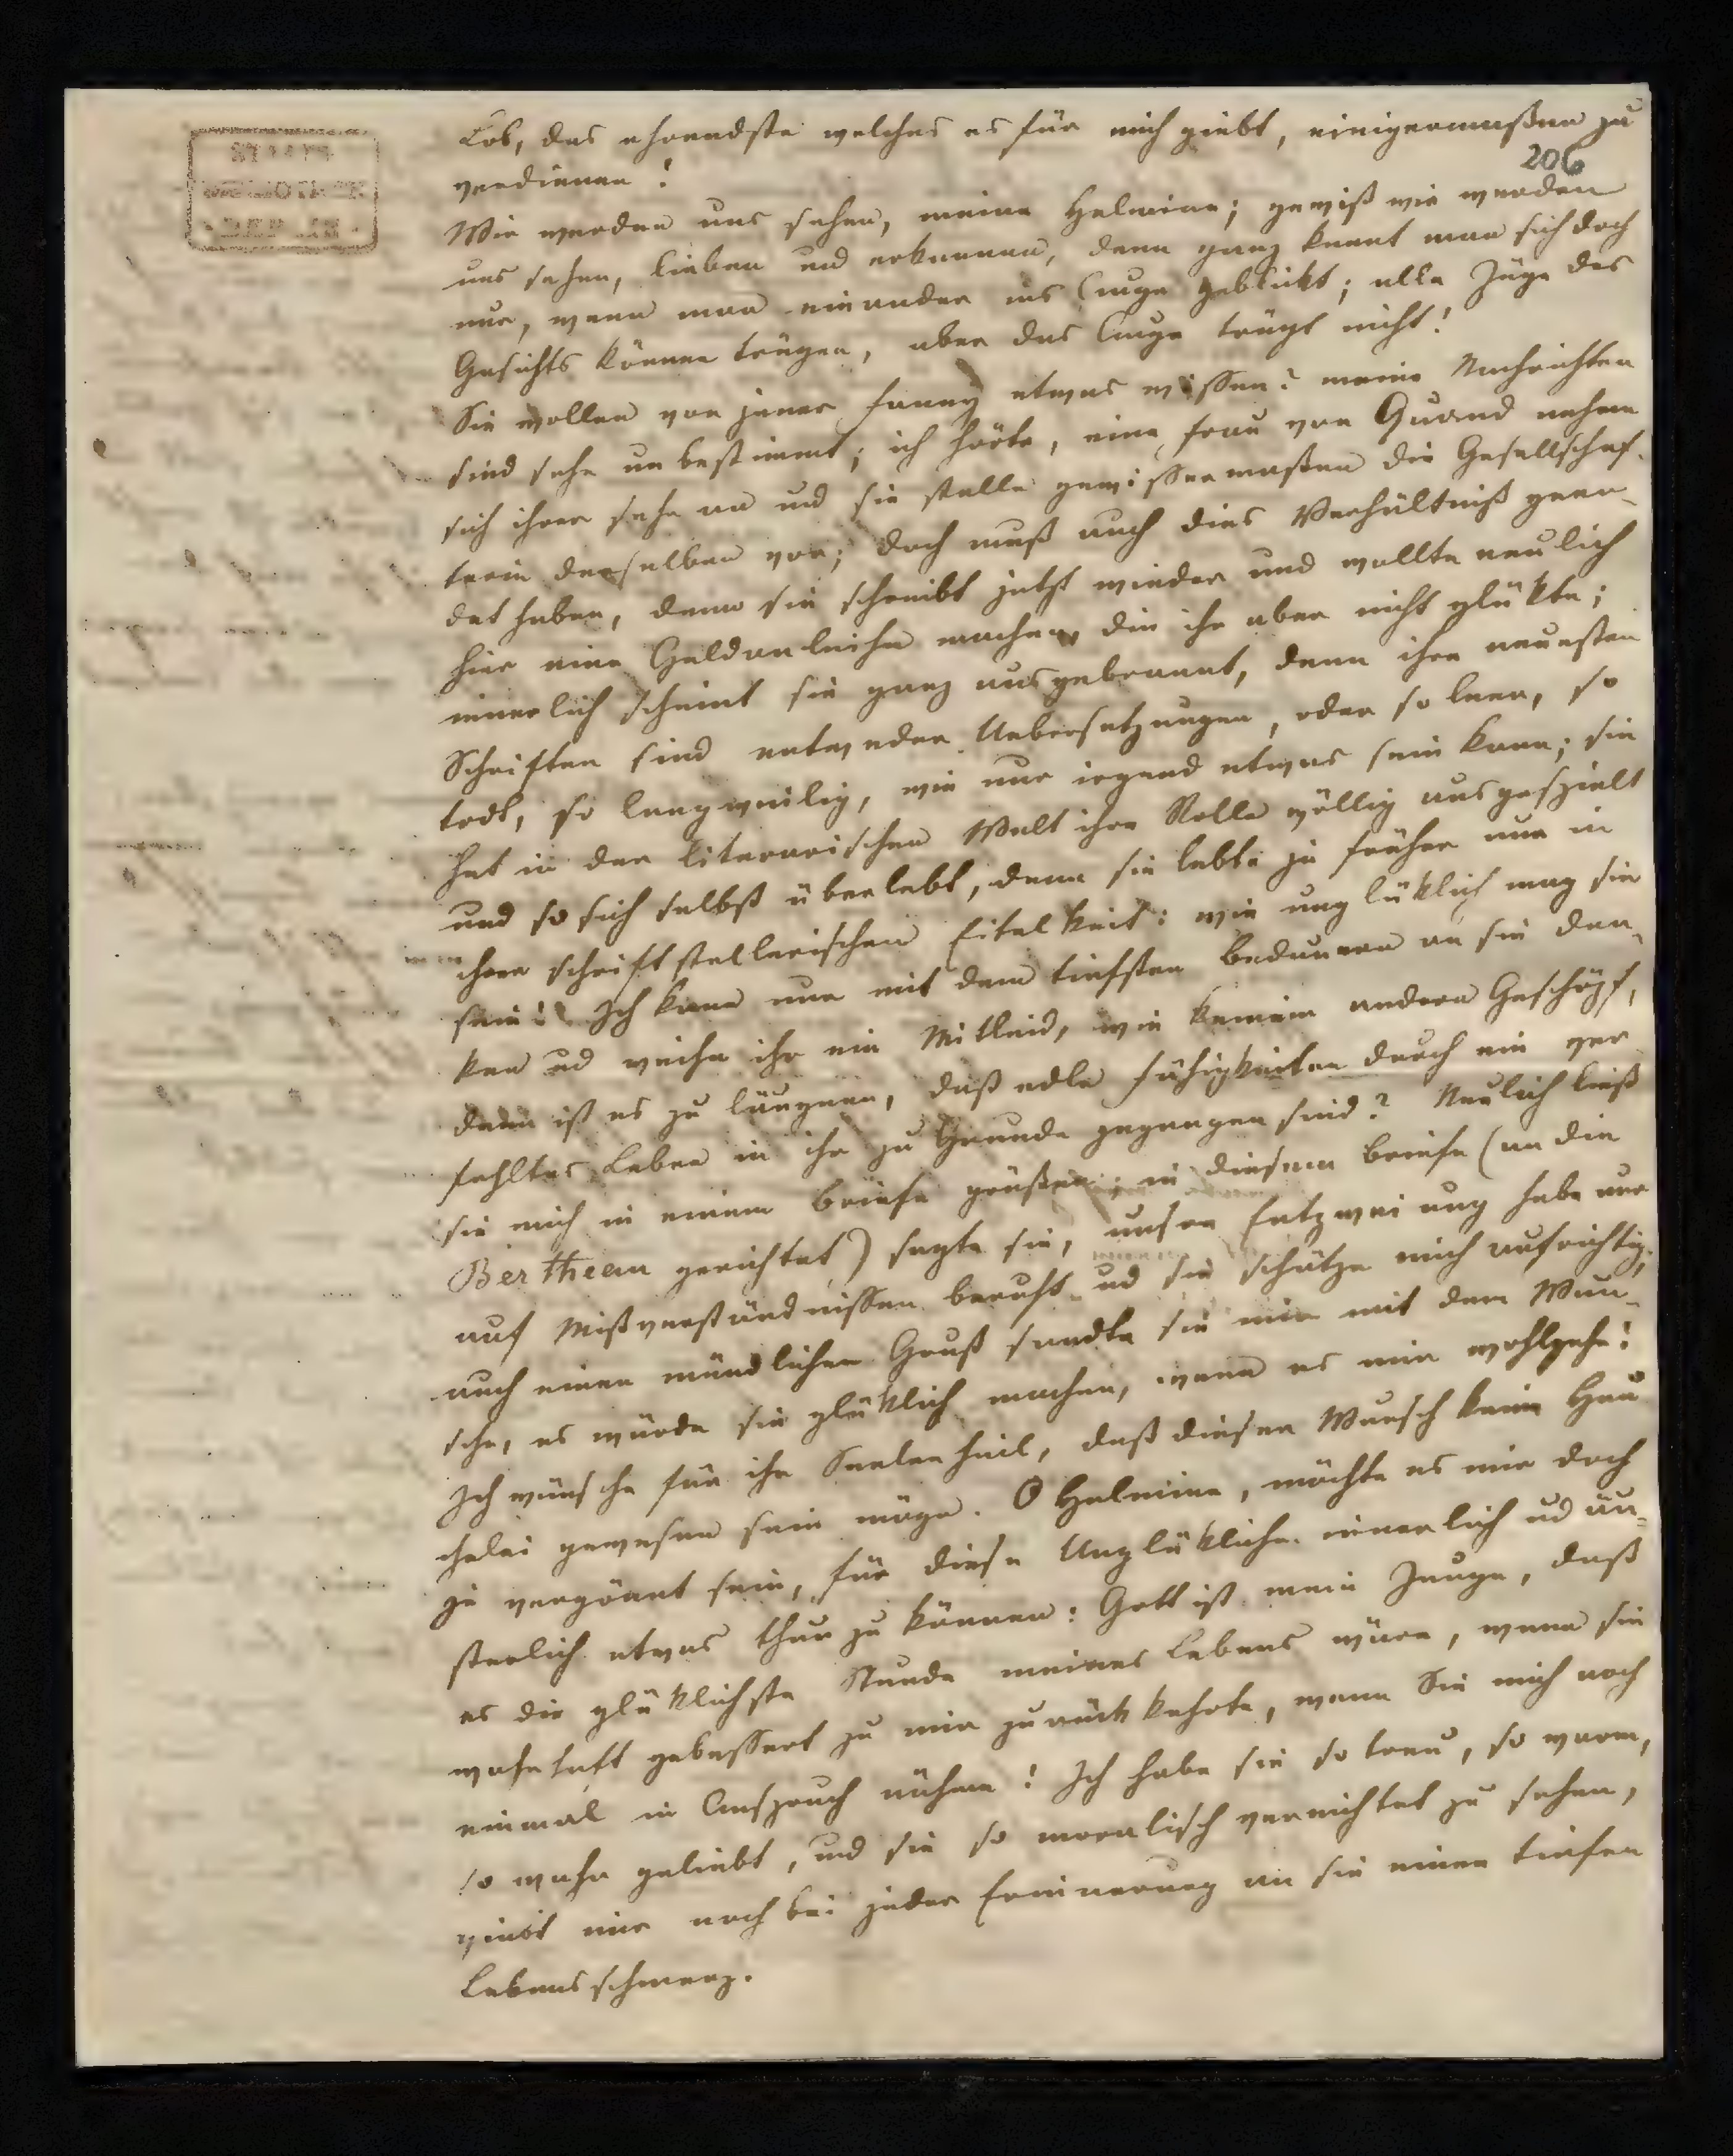 Lob, das ehrendste welches es für mich giebt, einigermaßen zu
206
verdienen!
Wir werden uns sehen, meine Helmine; gewiß wir werden
uns sehen, lieben und erkennen, denn ganz kennt man sich doch
nur, wenn man einander ins Auge geblickt; alle Züge des
Gesichts können trügen, aber das Auge trügt nicht!
Sie wollen von jener Fanny etwas wissen? meine Nachrichten
sind sehr unbestimmt; ich hörte, eine Frau von Quand nehme
sich ihrer sehr an und sie stelle gewissermaßen die Gesellschaf-
terin derselben vor; doch muß auch dies Verhältniß geen-
det haben, denn sie schreibt jetzt wieder und wollte neulich
hier eine Geldanleihe machen, die ihr aber nicht glükte;
innerlich scheint sie ganz ausgebrannt, denn ihre neuesten
Schriften sind entweder Uebersetzungen, oder so leer, so
todt, so langweilig, wie nur irgend etwas sein kann; sie
hat in der literarischen Welt ihre Rolle völlig ausgespielt
und so sich selbst überlebt, denn sie lebte ja früher nur in
ihrer schriftstellerischen Eitelkeit: wie unglüklich mag sie
sein! Ich kann nur mit dem tiefsten Bedauern an sie den-
ken ud weihe ihr ein Mitleid, wie keinem andern Geschöpf,
denn ist es zu läugnen, daß edle Fähigkeiten durch ein ver
fehltes Leben in ihr zu Grunde gegangen sind? Neulich ließ
sie mich in einem Briefe grüßen; in diesem Briefe (an die
Bertheau gerichtet) sagte sie, unsere Entzweiung habe nur
auf Mißverständnissen beruht ud sie schätze mich aufrichtig;
auch einen mündlichen Gruß sandte sie mir mit dem Wun-
sche, es würde sie glüklich machen, wenn es mir wohlgehe!
Ich wünsche für ihr Seelenheil, daß dieser Wunsch keine Heu
chelei gewesen sein möge. O Helmine, möchte es mir doch
je vergönnt sein, für diese Unglükliche innerlich ud äu-
ßerlich etwas thun zu können: Gott ist mein Zeuge, daß
es die glüklichste Stunde meines Lebens wäre, wenn sie
wahrhaft gebessert zu mir zurück kehrte, wenn Sie mich noch
einmal in Anspruch nähme! Ich habe sie so treu, so warm,
so wahr geliebt, und sie so moralisch vernichtet zu sehen,
giebt mir noch bei jeder Erinnerung an sie einen tiefen
Lebensschmerz.